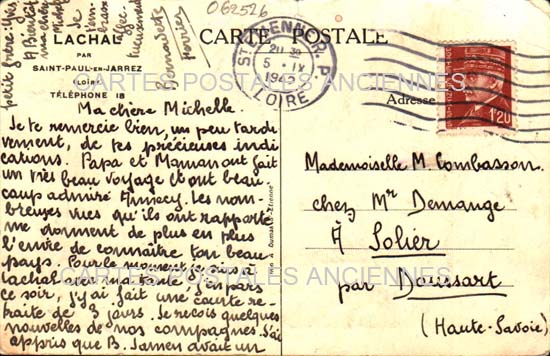 062526
LACHAL
PAR
SAINT-PAUL-EN-JARREZ
(LOIRE)
TÉLÉPHONE 18
CARTE POSTALE
Adresse
ST ETIENNE GR. P.
20 30
5 IX
1942
LOIRE
1F20
CARTES POSTALES ANCIENNES
Ma chère Michelle.
Je te remercie bien, un peu tardi
vement, de tes précieuses indi
cations. Papa et Maman ont fait
un très beau voyage et ont beau
coup admiré Annecy. Les nom-
breuses vues qu'ils ont rapporté
me donnent de plus en plus
l'envie de connaître ton beau
pays. Pour le moment je suis à
Lachal chez ma tante. J'en pars
ce soir, j'y ai fait une courte re-
traite de 3 jours. Je reçois quelques
nouvelles de nos compagnes. J'ai
appris que B. Jamen avait un
petit frère.
A Bientôt
ma chère
Michelle
Je
t'em
brasse
affec
tueusement
Bernadette
Mademoiselle M. Combasson.
chez Mr Demange
À Solier
par Doussart
(Haute-Savoie)
CARTES POSTALES ANCIENNES